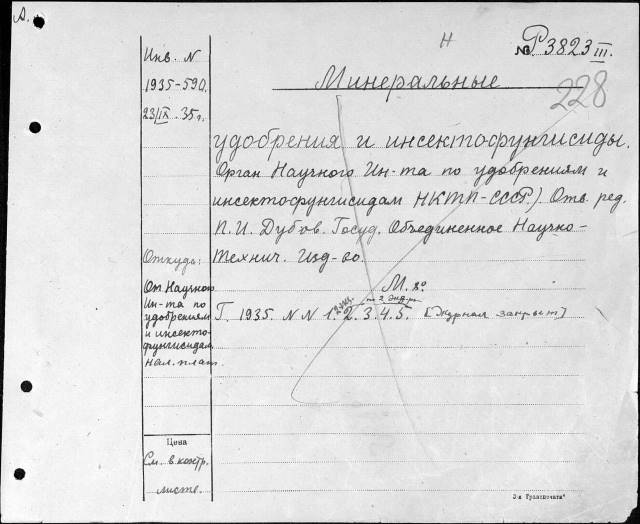 А.
Инв. N
1935-590.
23/IX.35г.
Н
№ Р3823 III.
228
Минеральные
удобрения и инсектофунгисиды.
Орган Научного Ин-та по удобрениям и
инсектофунгисидам НКТП-СССР.) Отв. ред.
П. И. Дубов. Госуд. Объединенное Научно-
Технич. Изд-во.
М. 8°
по 2 экз-ра
Г. 1935. N N 1. 2. 3. 4. 5. [Журнал закрыт]
Откуда:
От Научного
Ин-та по
удобрениям
и инсекто-
фунгисидам
нал. плат.
Цена
См. в контр.
листе.
3-я Транспечати